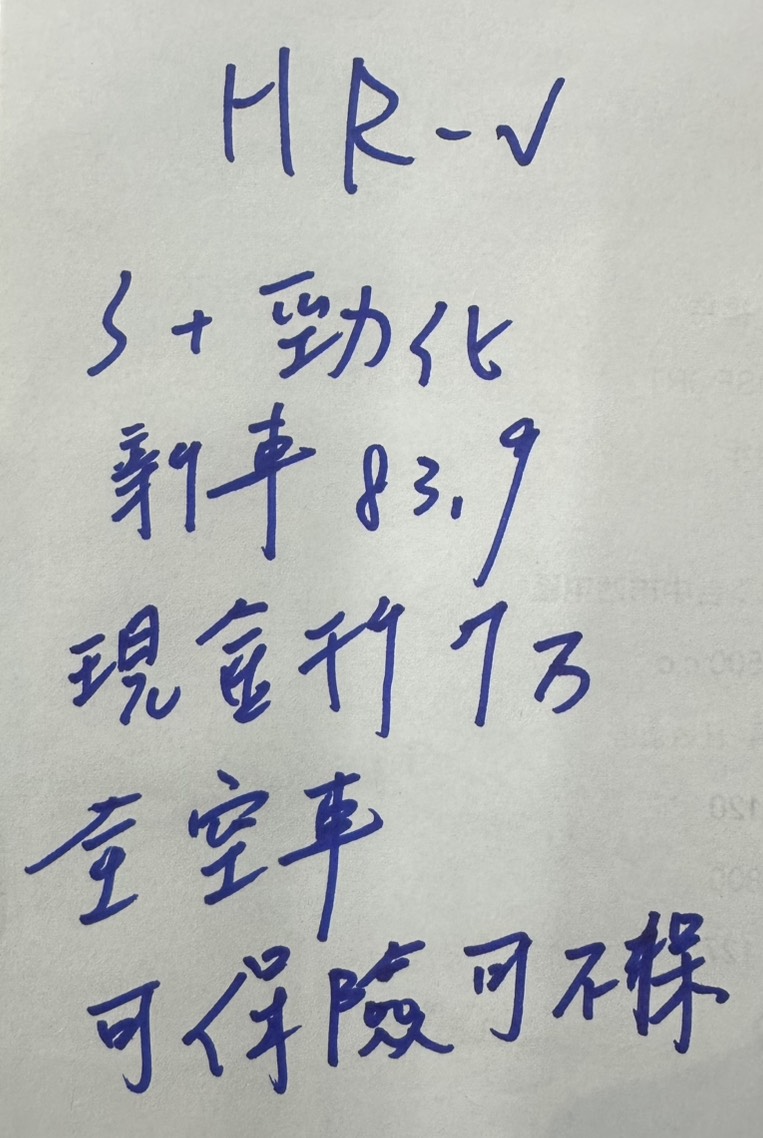 HR-V
S+勁化
新車 83.9
現金折7万
全空車
可保險可不保